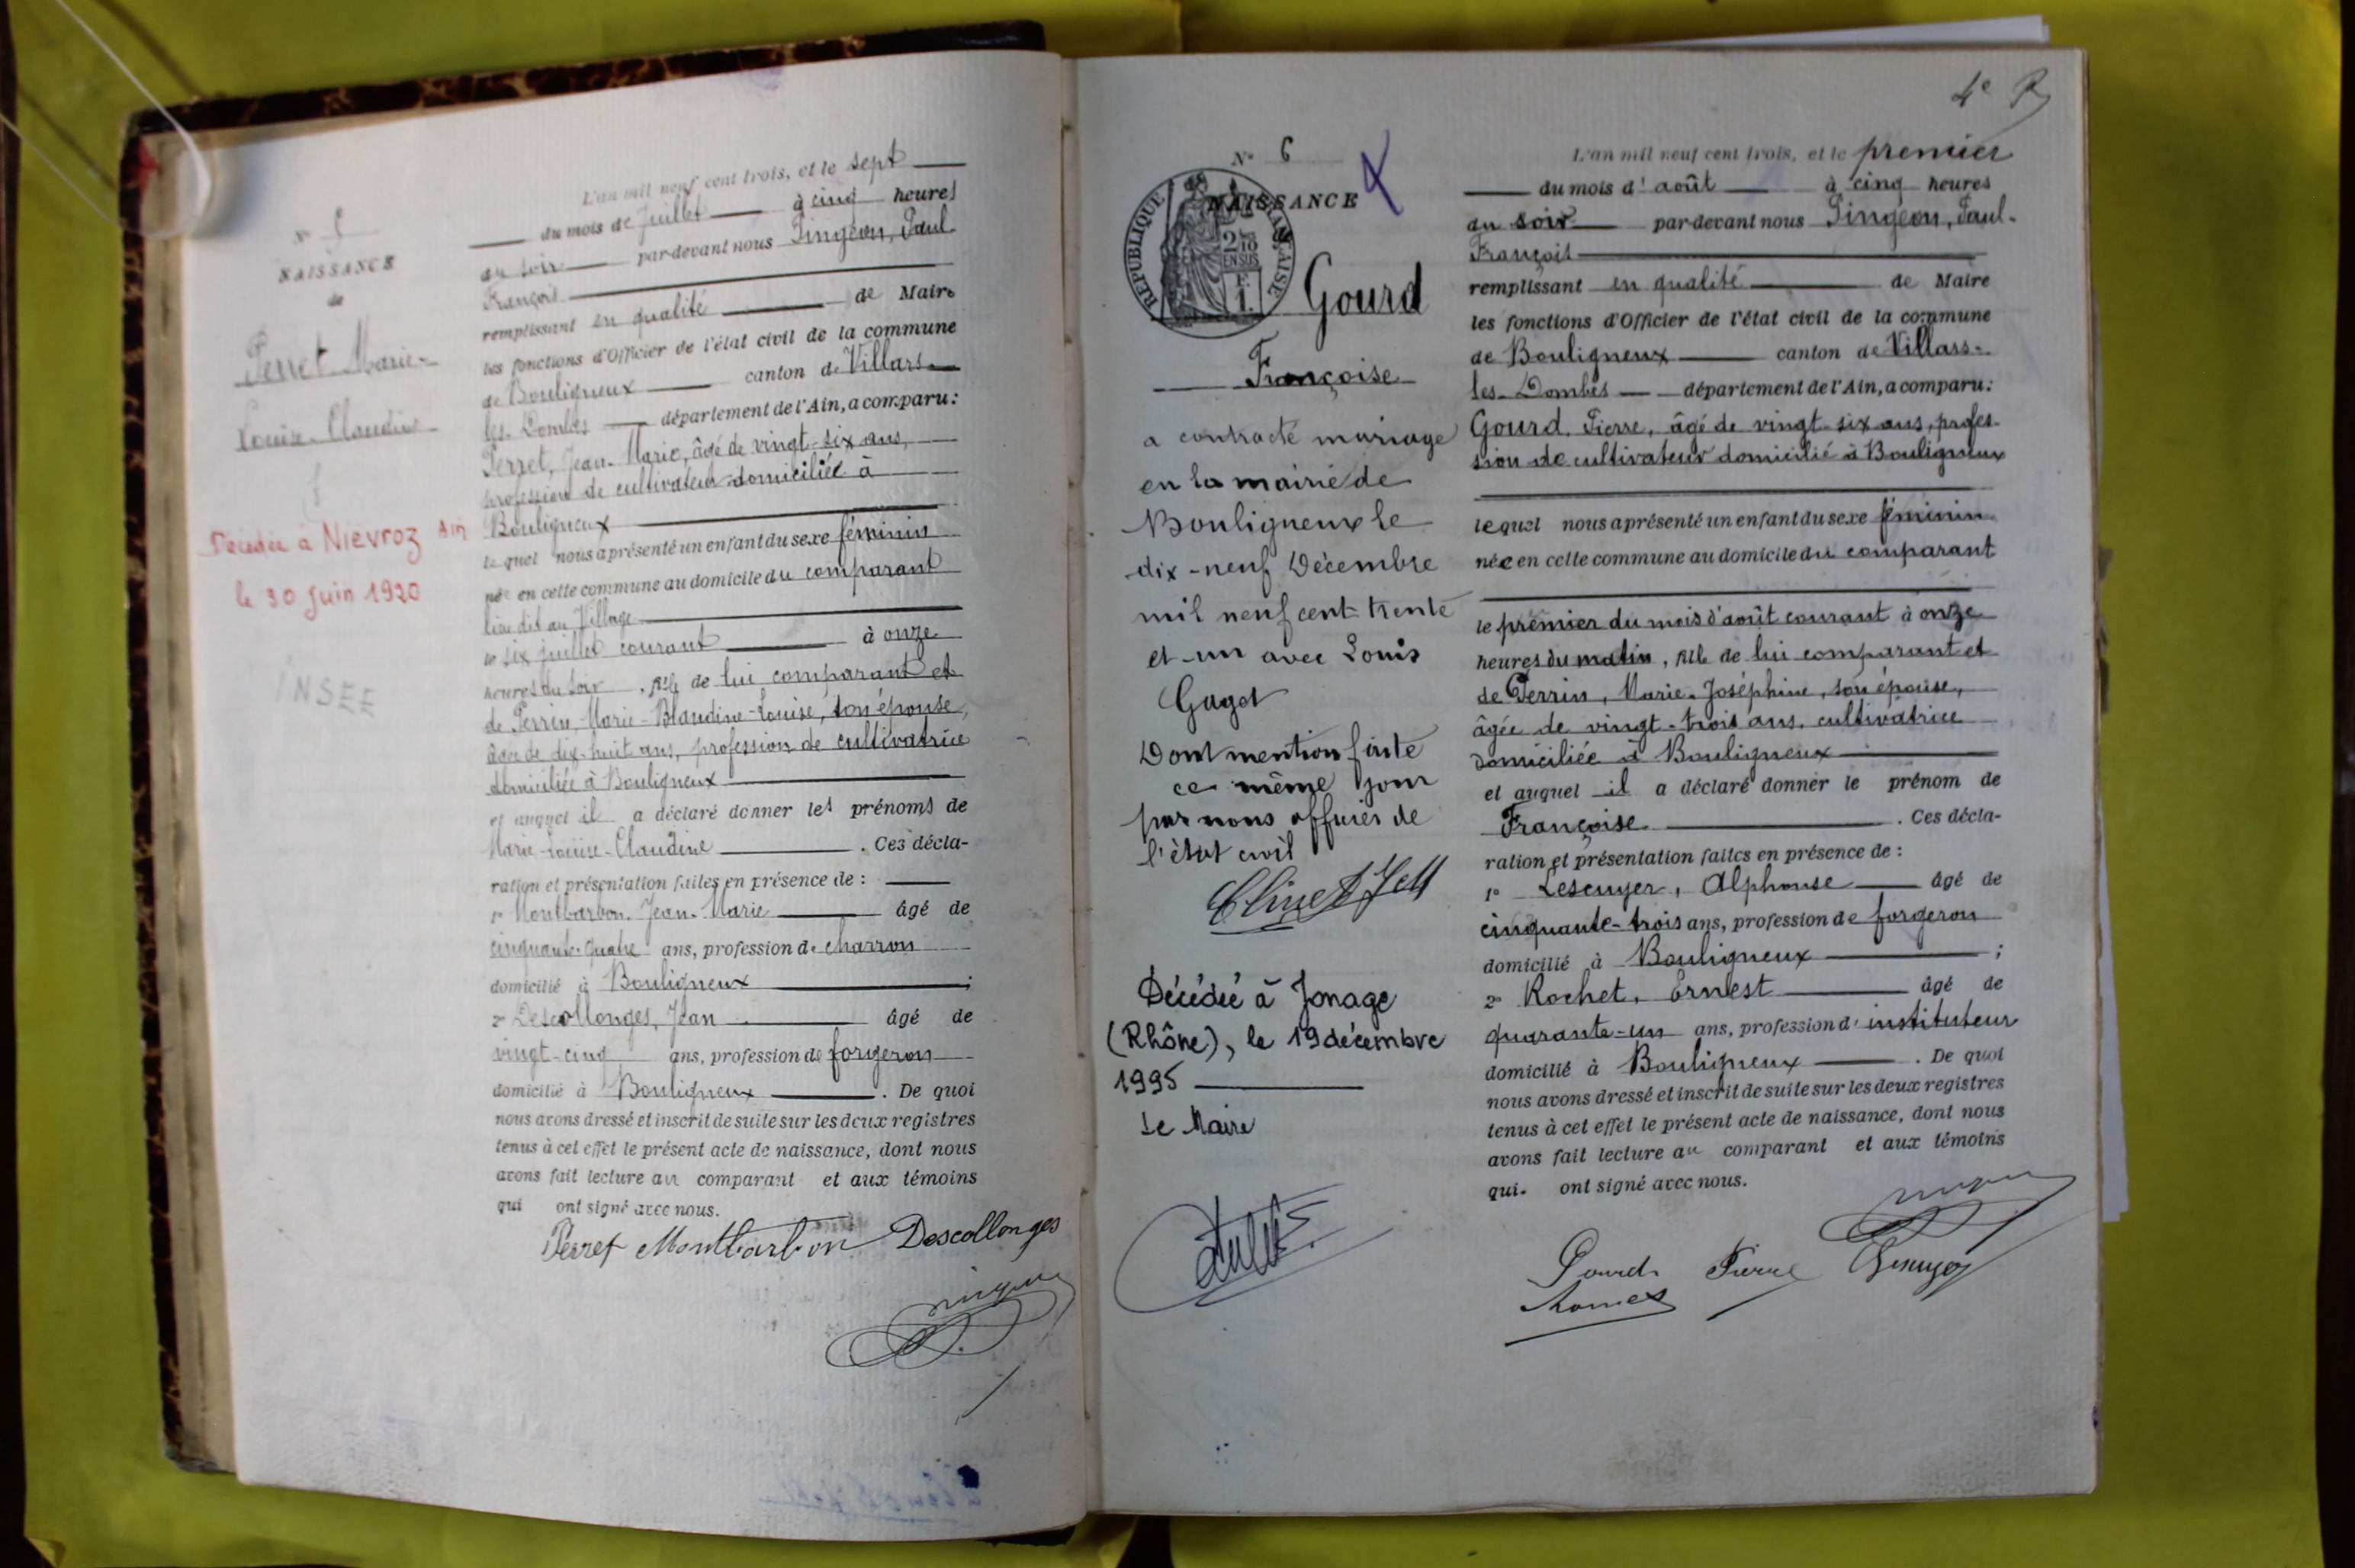 N° 5
NAISSANCE
de
Perret Marie-
Louise-Claudine
Décédée à Nievroz Ain
le 30 Juin 1920
INSEE
L'an mil neuf cent trois, et le sept
du mois de juillet à cinq heures
du soir par-devant nous Pingeon, Paul-
François
remplissant en qualité de Maire
les fonctions d'Officier de l'état civil de la commune
de Bouligneux canton de Villars-
les-Dombes département de l'Ain, a comparu:
Perret, Jean-Marie, âgé de vingt-six ans,
profession de cultivateur domiciliée à
Bouligneux
lequel nous a présenté un enfant du sexe féminin
née en cette commune au domicile du comparant
lieu dit au Village
le six juillet courant à onze
heures du soir, fille de lui comparant et
de Perrin, Marie-Blandine-Louise, son épouse,
âgée de dix-huit ans, profession de cultivatrice
domiciliée à Bouligneux
et auquel il a déclaré donner les prénoms de
Marie-Louise-Claudine. Ces décla-
ration et présentation faites en présence de:
1° Montbarbon, Jean-Marie âgé de
cinquante-quatre ans, profession de charron
domicilié à Bouligneux;
2° Descollonges, Jean âgé de
vingt-cinq ans, profession de forgeron
domicilié à Bouligneux. De quoi
nous avons dressé et inscrit de suite sur les deux registres
tenus à cet effet le présent acte de naissance, dont nous
avons fait lecture au comparant et aux témoins
qui ont signé avec nous.
Perret Montbarbon Descollonges
4e
N° 6
NAISSANCE
REPUBLIQUE FRANÇAISE
2/10 EN SUS
F. 1.
Gourd
Françoise
a contracté mariage
en la mairie de
Bouligneux le
dix-neuf Décembre
mil neuf cent trente
et-un avec Louis
Gaget
Dont mention finte
ce même jour
par nous officier de
l'état civil
Décédée à Jonage
(Rhône), le 19 décembre
1995
Le Maire
L'an mil neuf cent trois, et le premier
du mois d'août à cinq heures
du soir par-devant nous Pingeon, Paul-
François
remplissant en qualité de Maire
les fonctions d'Officier de l'état civil de la commune
de Bouligneux canton de Villars-
les-Dombes département de l'Ain, a comparu:
Gourd, Pierre, âgé de vingt-six ans, profes-
sion de cultivateur domicilié à Bouligneux
lequel nous a présenté un enfant du sexe féminin
née en cette commune au domicile du comparant
le premier du mois d'août courant à onze
heures du matin, fille de lui comparant et
de Perrin, Marie-Joséphine, son épouse,
âgée de vingt-trois ans, cultivatrice
domiciliée à Bouligneux
et auquel il a déclaré donner le prénom de
Françoise. Ces décla-
ration et présentation faites en présence de:
1° Lescuyer, Alphonse âgé de
cinquante-trois ans, profession de forgeron
domicilié à Bouligneux;
2° Rochet, Ernest âgé de
quarante-un ans, profession d'instituteur
domicilié à Bouligneux. De quoi
nous avons dressé et inscrit de suite sur les deux registres
tenus à cet effet le présent acte de naissance, dont nous
avons fait lecture au comparant et aux témoins
qui. ont signé avec nous.
Gourd Pierre Lescuyer